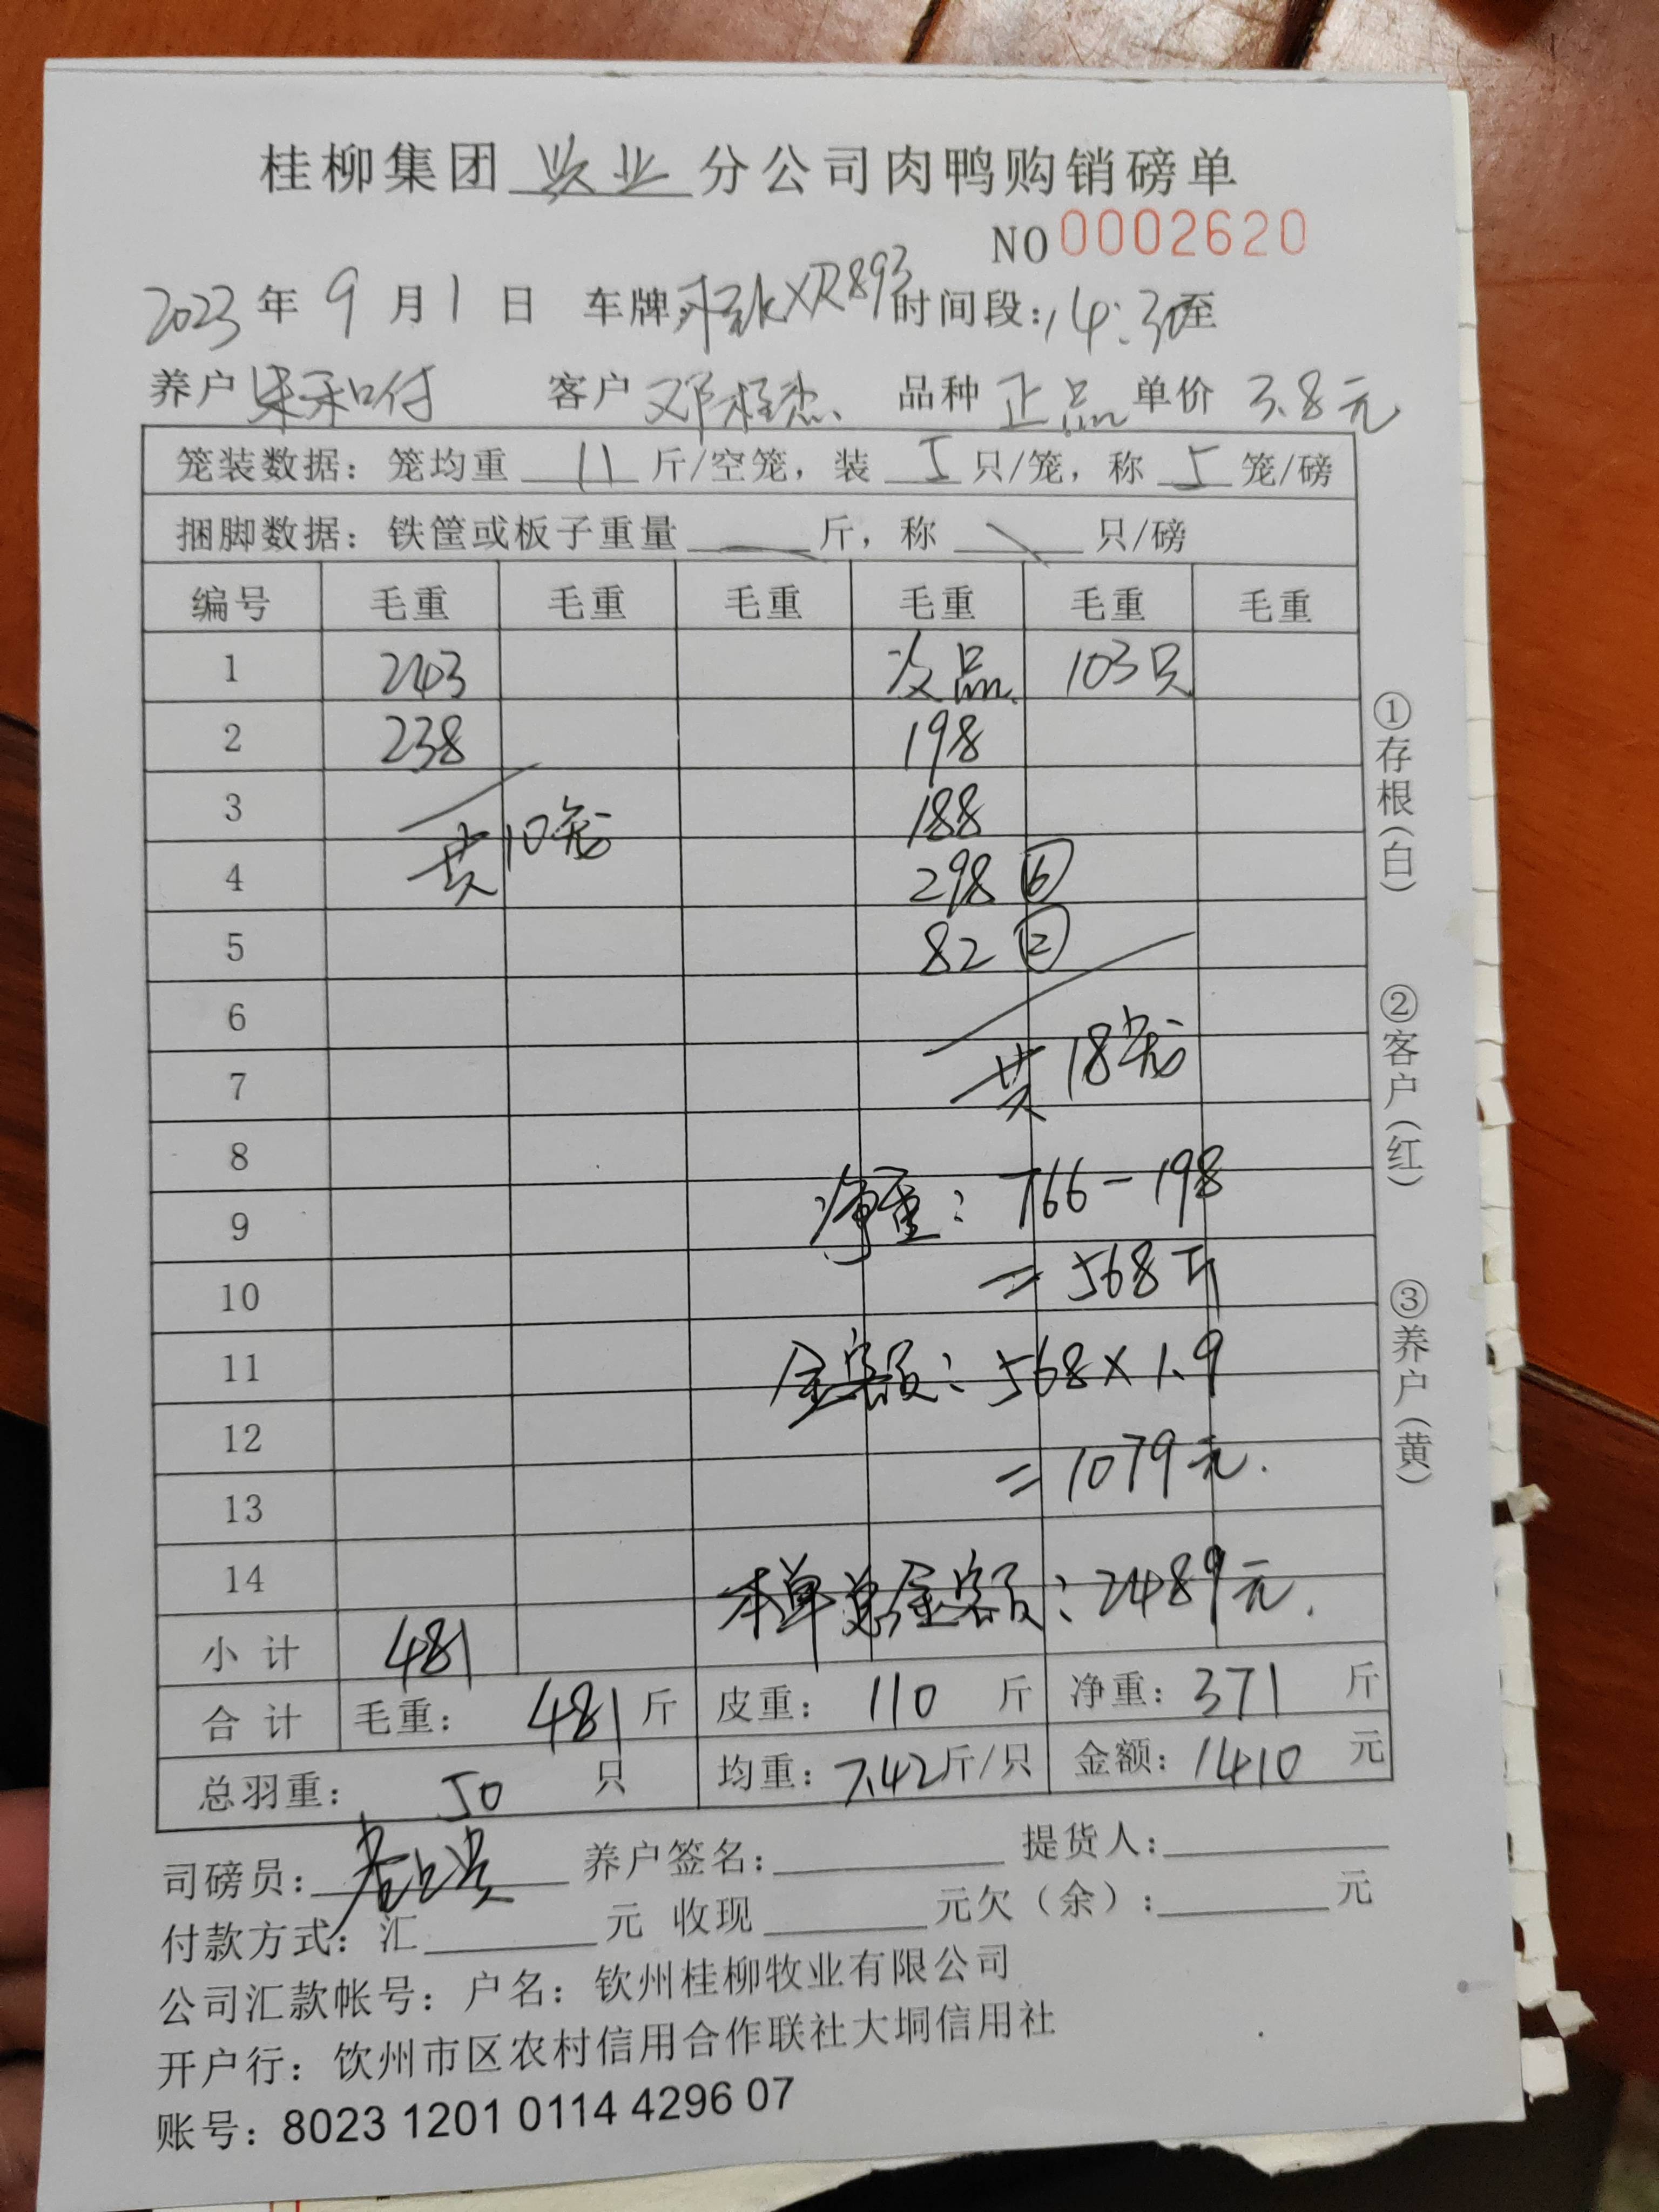 桂柳集团牧业分公司肉鸭购销磅单
NO 0002620
2023年9月1日 车牌: XR893 时间段:14:30至
养户 朱和付 客户 邓 杰 品种 正品 单价 3.8元
笼装数据:笼均重 11 斤/空笼,装 5 只/笼,称 5 笼/磅
捆脚数据:铁筐或板子重量 斤,称 只/磅
编号 毛重 毛重 毛重 毛重 毛重 毛重
1 243 次品 103只
2 238 198
3 188
共10笼
4 298 ⑥
5 82 ②
6
7 共18笼
8
9 净重:766-198
10 =568斤
11 金额:568×1.9
12 =1079元.
13
14 本单总金额:2489元.
小计 481
合计 毛重: 481斤 皮重: 110 斤 净重: 371 斤
总羽重: 50 只 均重: 7.42斤/只 金额: 1410 元
司磅员: 养户签名: 提货人:
付款方式:汇 元 收现 元欠(余): 元
公司汇款帐号:户名:钦州桂柳牧业有限公司
开户行:钦州市区农村信用合作联社大垌信用社
账号:8023 1201 0114 4296 07
①存根(白)
②客户(红)
③养户(黄)